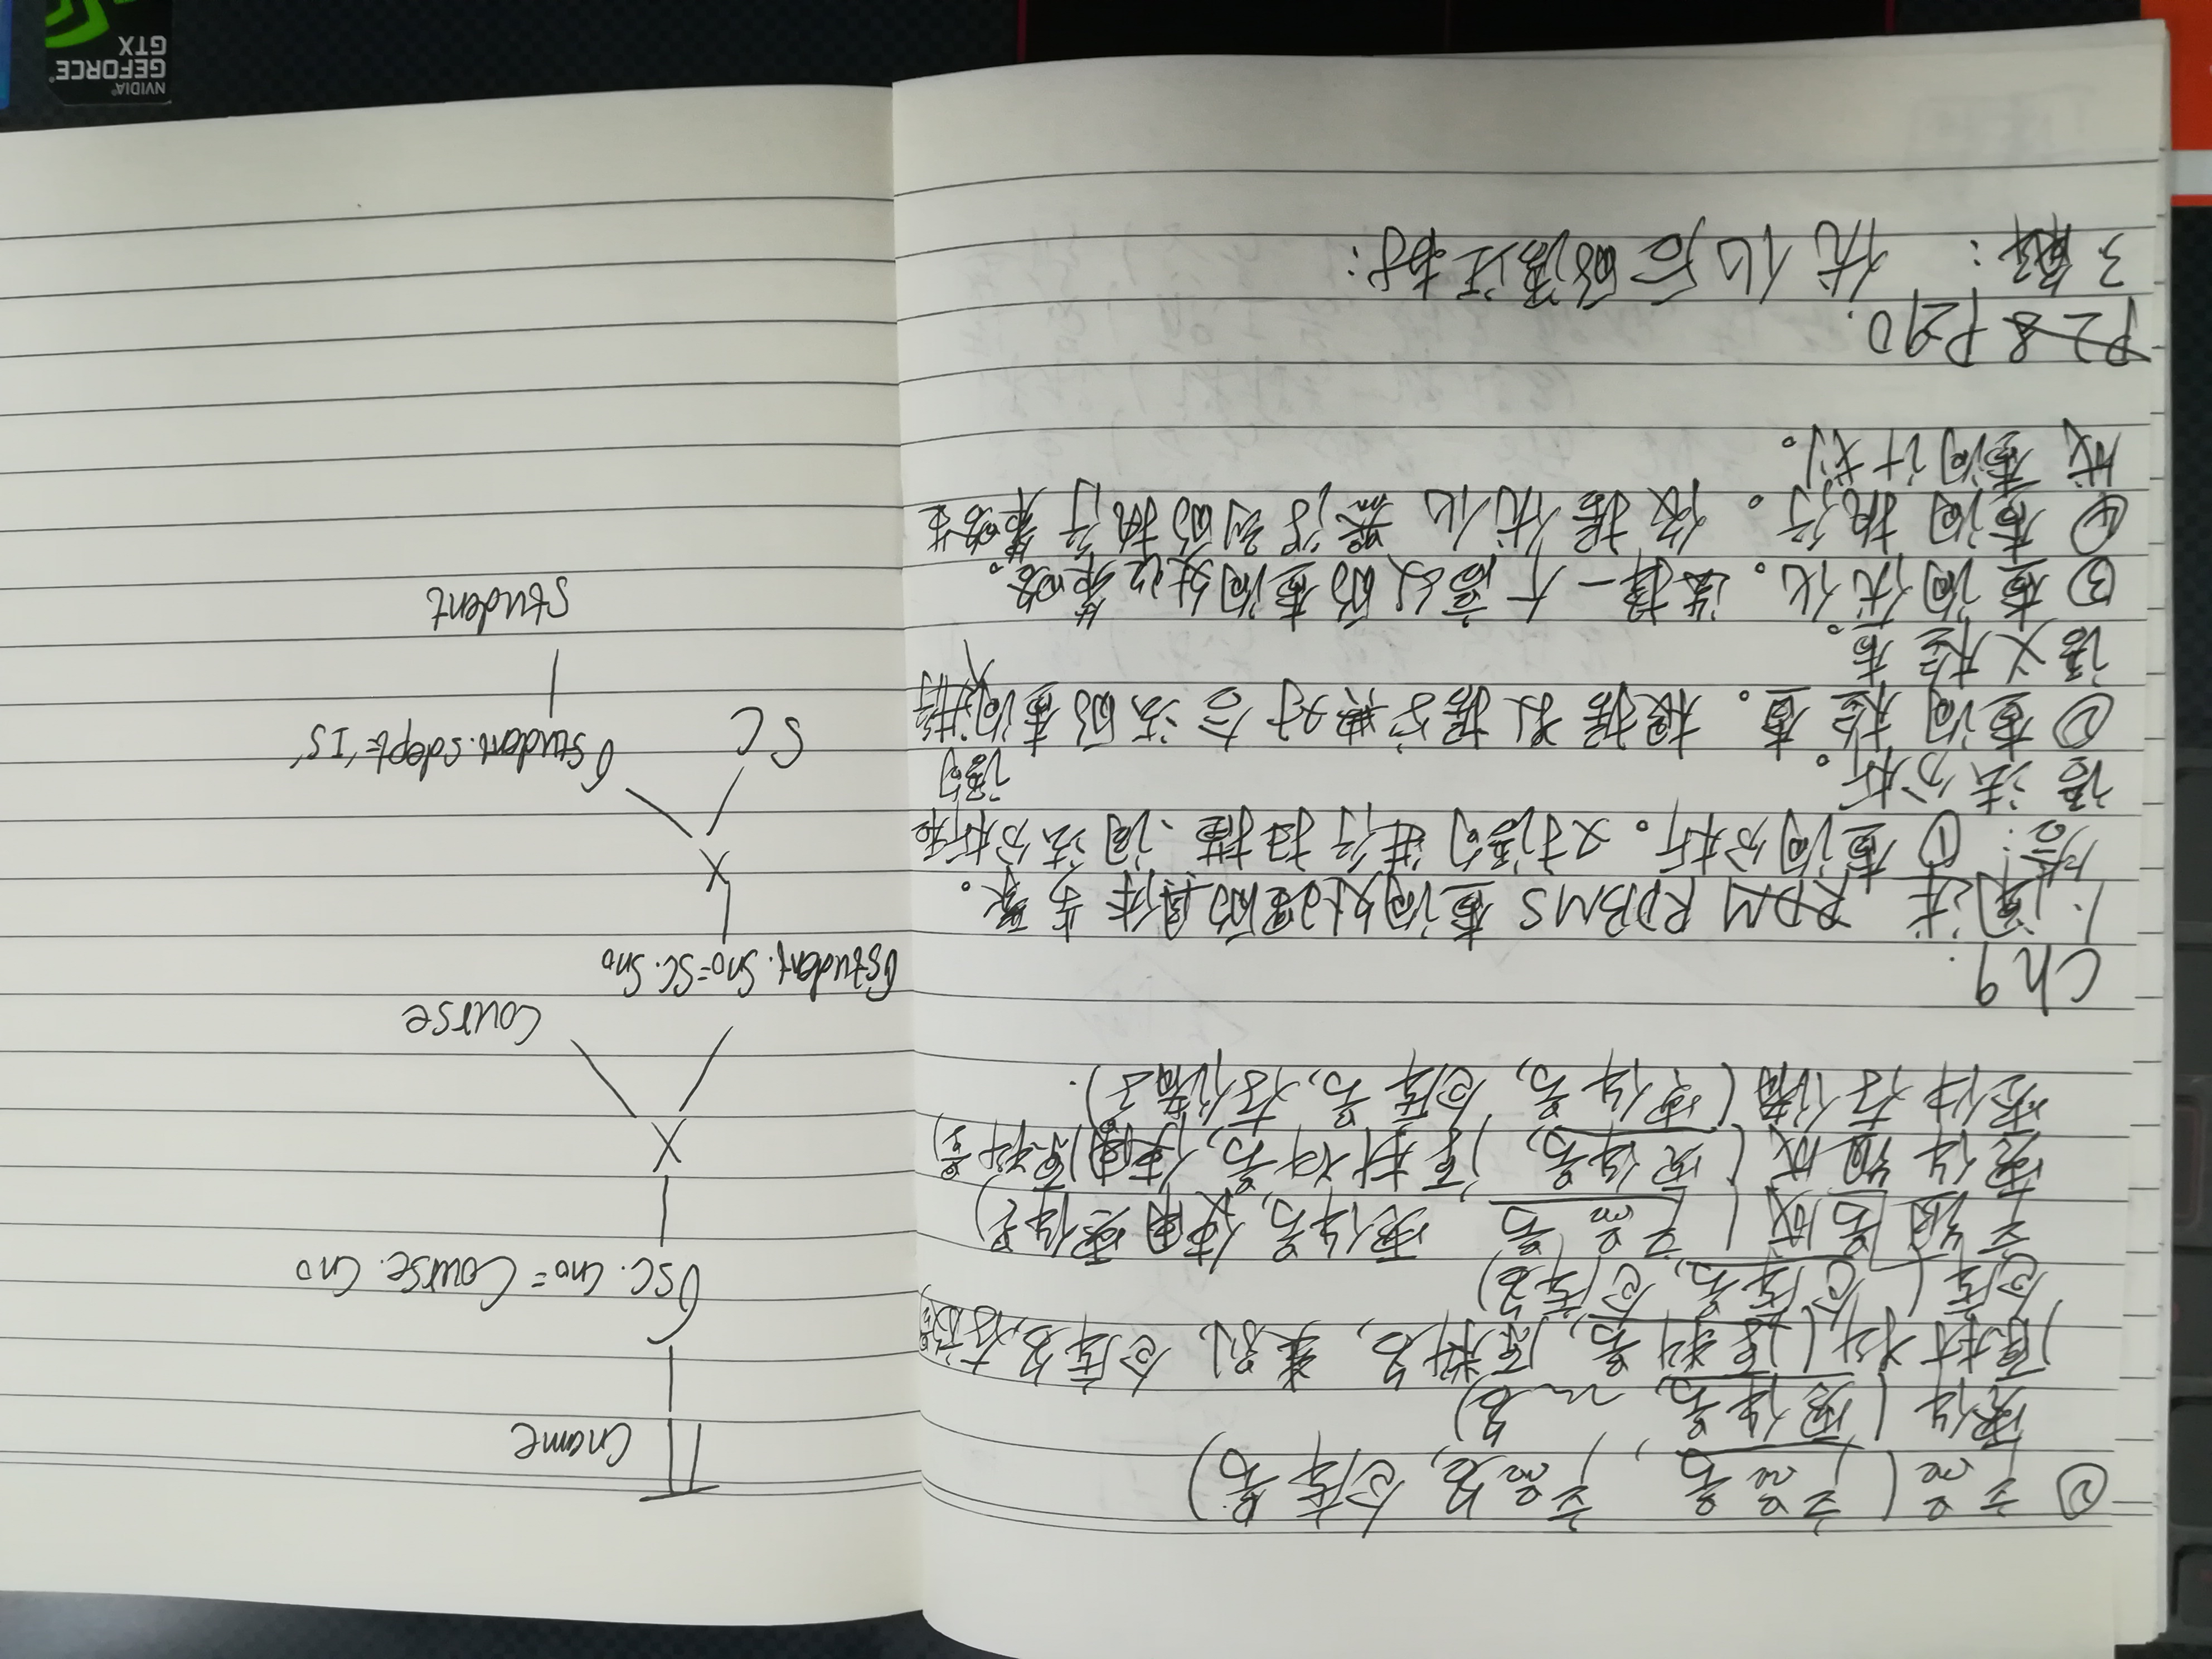 ② 产品(产品号, 产品名, 仓库号)
零件(零件号, ~~名)
原材料(原料号, 原料名, 类别, 仓库名, 存放量)
仓库(仓库号, 仓库名)
产组号成(产品号, 零件号, 使用零件量)
零件组成(零件号, 原材料号, 使用原料量)
零件存储(零件号, 仓库号, 存储).
Ch9.
1. 阐述 RDM RDBMS 查询处理的具体步骤。
答: ① 查询分析。对语句进行扫描、词法分析和
语法分析。
② 查询检查。根据数据字典对合法的查询语句进行
语义检查。
③ 查询优化。选择一个高效的查询处理策略。
④ 查询执行。依据优化器得到的执行策略生
成查询计划。
P28 P290.
3. 解: 优化后的语法树:
Π Cname
σ SC.Cno=Course.Cno
X
Course
σ Student.Sno=SC.Sno
X
SC
σ Student.Sdept='IS'
Student
NVIDIA
GEFORCE
GTX